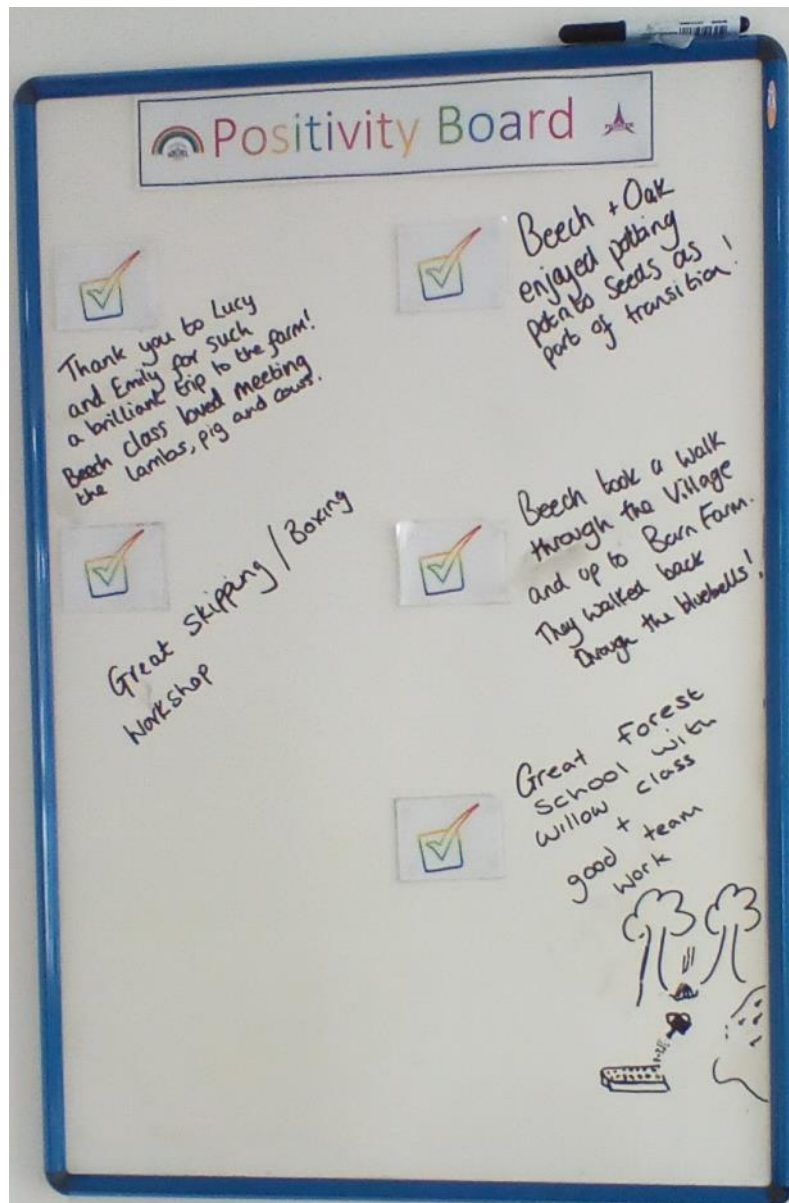 Positivity Board
Thank you to Lucy
and Emily for such
a brilliant trip to the farm!
Beech class loved meeting
the lambs, pig and cows.
Great Skipping / Boxing
Workshop
Beech + Oak
enjoyed potting
potato seeds as
part of transition!
Beech took a walk
through the Village
and up to Barn Farm.
They walked back
through the bluebells!
Great Forest
School with
willow class
+
good team
work